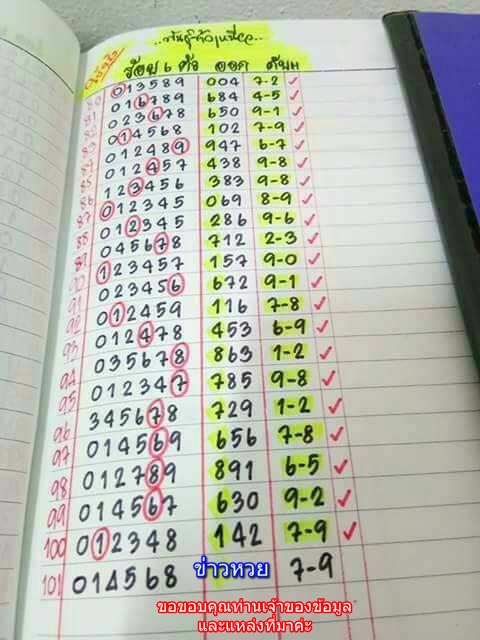 ร้อย 6 ตัว ออก
013589 004 7-2 ✓
016789 684 4-5 ✓
023678 650 9-1 ✓
014568 102 7-9 ✓
012489 947 6-7 ✓
012457 438 9-8 ✓
86 123456 383 9-8 ✓
87 012345 069 8-9 ✓
88 012345 286 9-6 ✓
89 045678 712 2-3 ✓
90 123457 157 9-0 ✓
91 023456 672 9-1 ✓
92 012459 116 7-8 ✓
93 012478 453 6-9 ✓
94 035678 863 1-2 ✓
95 012347 785 9-8 ✓
96 345678 729 1-2 ✓
97 014569 656 7-8 ✓
98 012789 891 6-5 ✓
99 014567 630 9-2 ✓
100 012348 142 7-9 ✓
101 014568 7-9
ข่าวหวย
ขอขอบคุณท่านเจ้าของข้อมูล
และแหล่งที่มาค่ะ